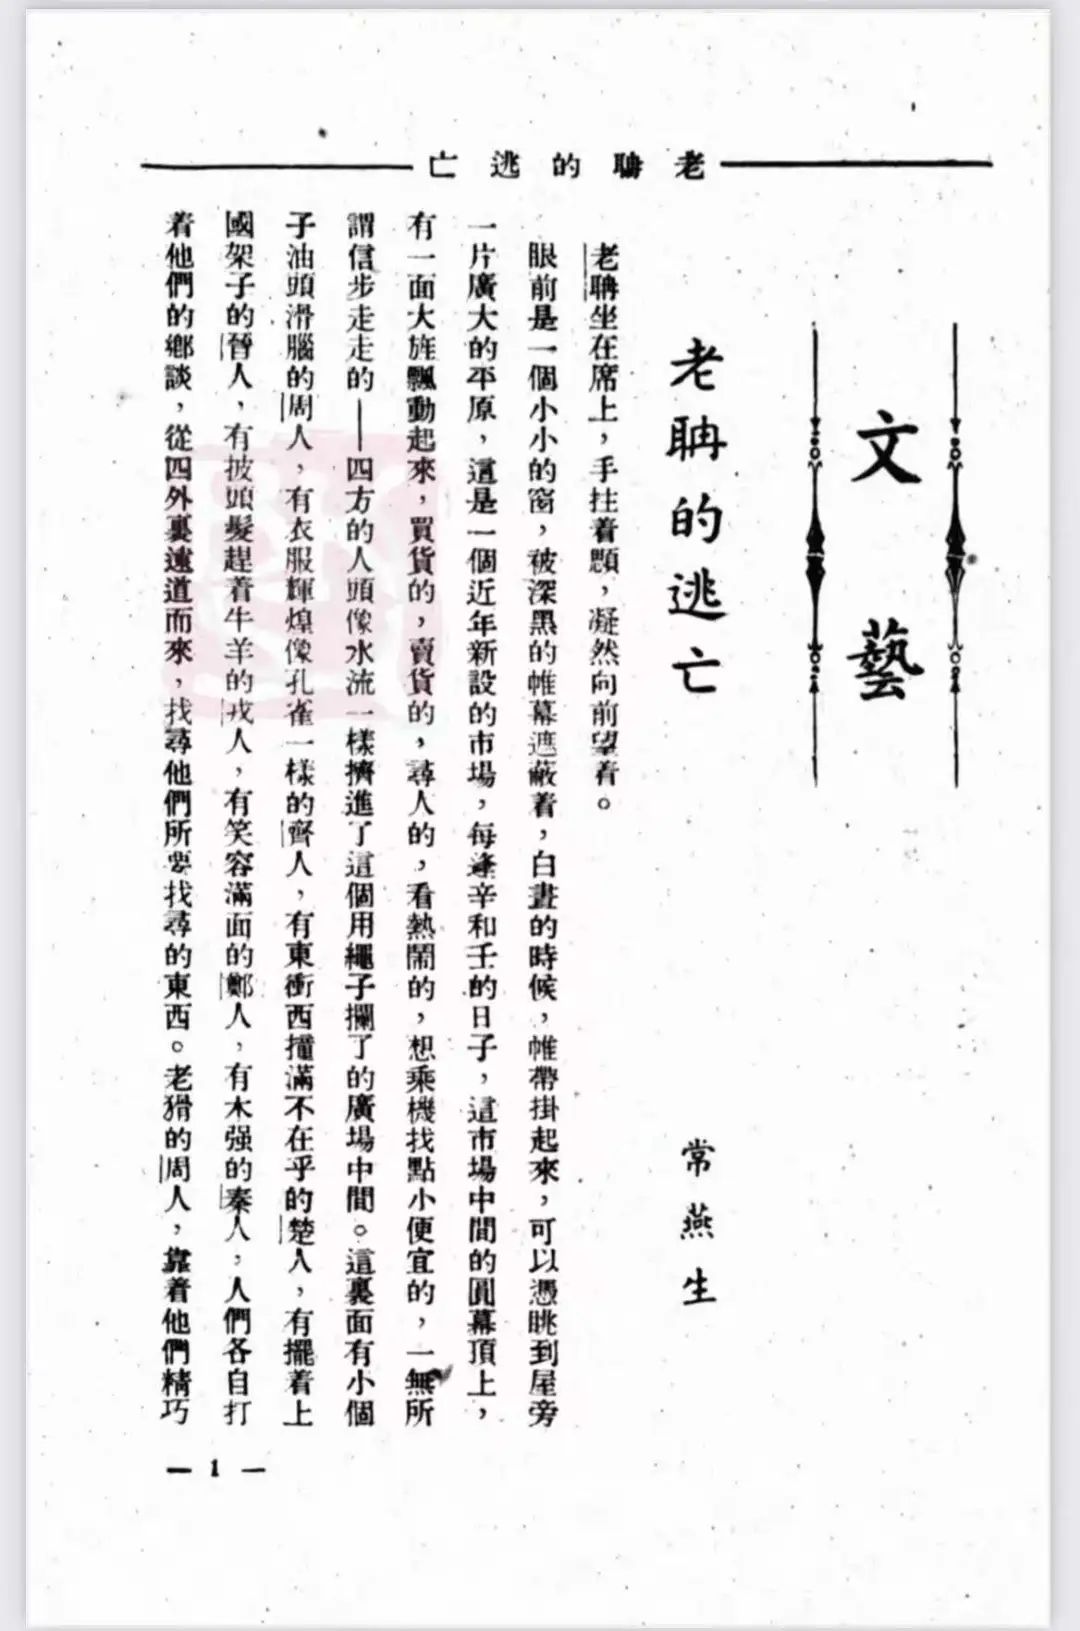 老聃的逃亡
文藝
老聃的逃亡
常燕生
老聃坐在席上，手拄着顋，凝然向前望着。
眼前是一個小小的窗，被深黑的帷幕遮蔽着，白晝的時候，帷帶掛起來，可以憑眺到屋旁
一片廣大的平原，這是一個近年新設的市場，每逢辛和壬的日子，這市場中間的圓幕頂上，
有一面大旌飄動起來，買貨的，賣貨的，尋人的，看熱鬧的，想乘機找點小便宜的，一無所
謂信步走走的——四方的人頭像水流一樣擠進了這個用繩子攔了的廣場中間。這裏面有小個
子油頭滑腦的周人，有衣服輝煌像孔雀一樣的齊人，有東衝西撞滿不在乎的楚人，有擺着上
國架子的晉人，有披頭髮趕着牛羊的戎人，有笑容滿面的鄭人，有木强的秦人，人們各自打
着他們的鄉談，從四外裏遠道而來，找尋他們所要找尋的東西。老猾的周人，靠着他們精巧
— 1 —